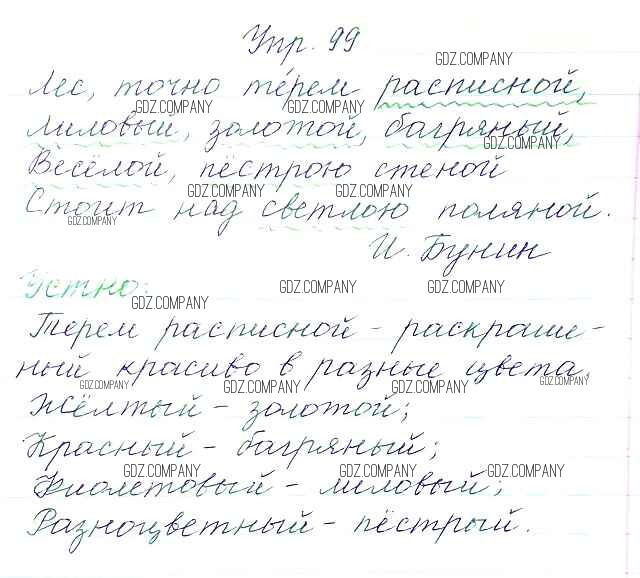 Упр. 99
GDZ.COMPANY
Лес, точно те́рем расписной,
GDZ.COMPANY GDZ.COMPANY
Лиловый, золотой, багряный,
GDZ.COMPANY
Весёлой, пёстрою стеной
GDZ.COMPANY GDZ.COMPANY
Стоит над светлою поляной.
GDZ.COMPANY
И. Бунин
Устно:
GDZ.COMPANY GDZ.COMPANY
GDZ.COMPANY
Терем расписной - раскраше-
ный красиво в разные цвета.
GDZ.COMPANY GDZ.COMPANY GDZ.COMPANY GDZ.COMPANY
Жёлтый - золотой;
Красный - багряный;
GDZ.COMPANY GDZ.COMPANY GDZ.COMPANY
Фиолетовый - лиловый;
Разноцветный - пёстрый.